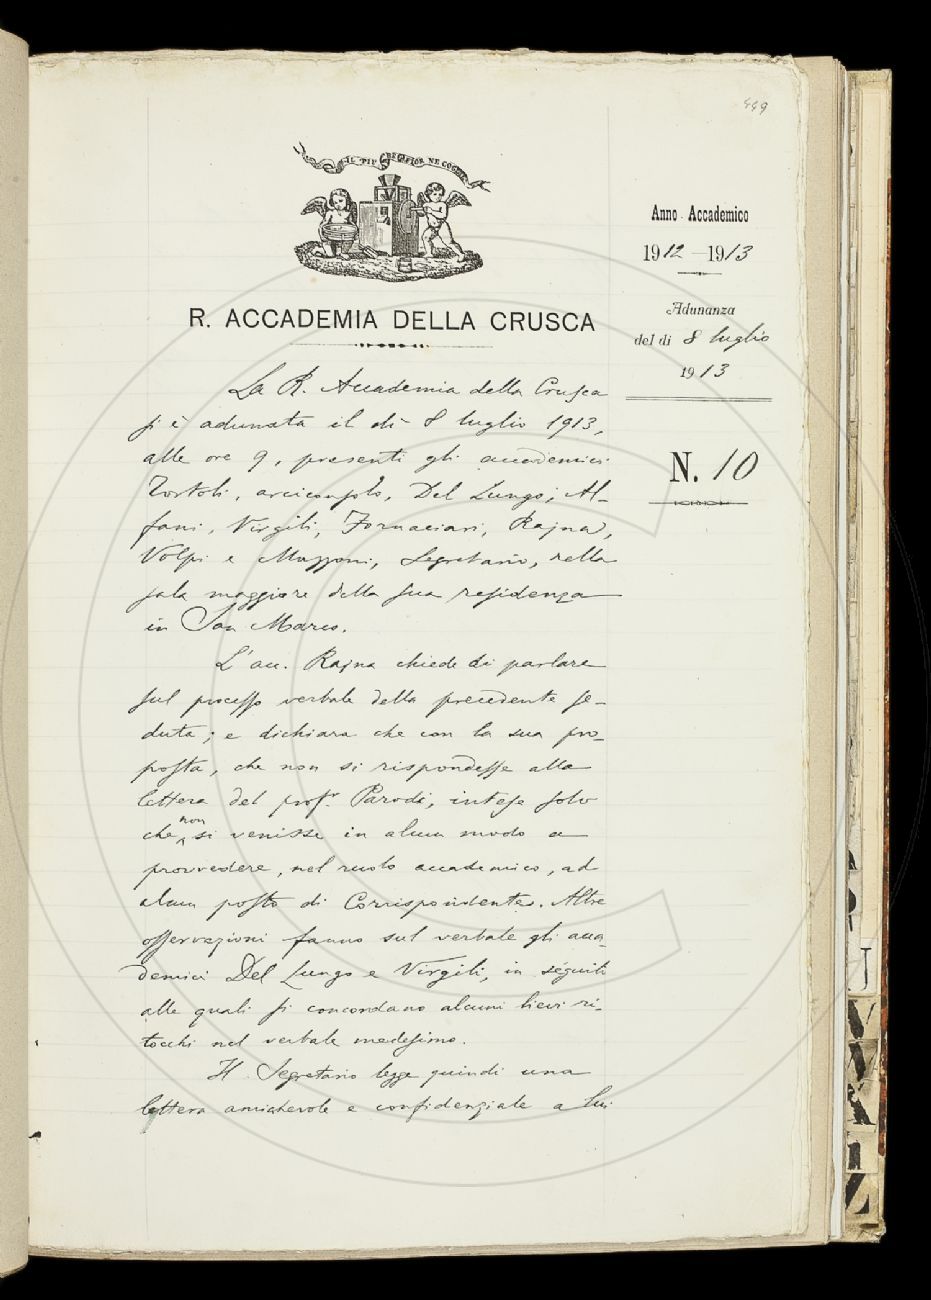 449
IL PIÙ BEL FIOR NE COGLIE
Anno Accademico
1912-1913
R. ACCADEMIA DELLA CRUSCA
Adunanza
del dì 8 luglio
1913
N. 10
La R. Accademia della Crusca
si è adunata il dì 8 luglio 1913,
alle ore 9, presenti gli accademici
Tortoli, arciconsolo, Del Lungo, Al-
fani, Virgili, Fornaciari, Rajna,
Volpi e Mazzoni, Segretario, nella
sala maggiore della sua residenza
in San Marco.
L'acc. Rajna chiede di parlare
sul processo verbale della precedente se-
duta; e dichiara che con la sua pro-
posta, che non si rispondesse alla
lettera del prof.r Parodi, intese solo
che non si venisse in alcun modo a
provvedere, nel ruolo accademico, ad
alcun posto di Corrispondente. Altre
osservazioni fanno sul verbale gli acca-
demici Del Lungo e Virgili, in séguito
alle quali si concordano alcuni lievi ri-
tocchi nel verbale medesimo.
Il Segretario legge quindi una
lettera amichevole e confidenziale a lui